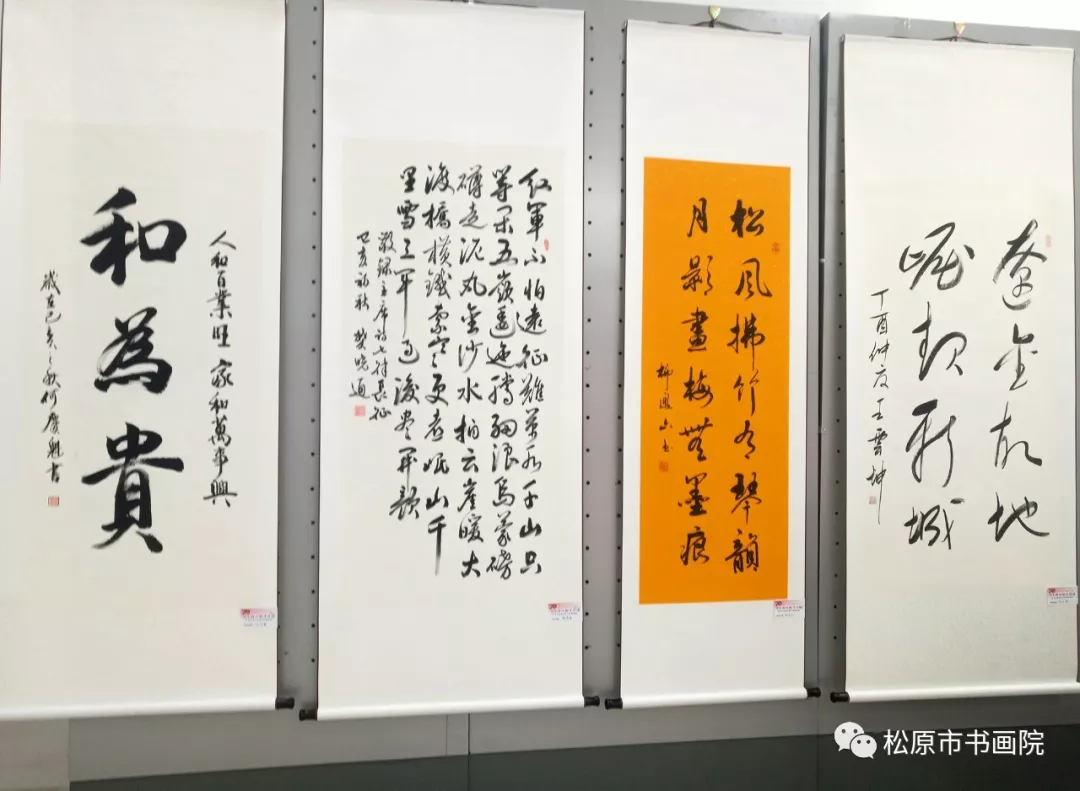 人和百業旺 家和萬事興
和為貴
歲在己亥之秋何慶魁書
红軍不怕遠征難萬水千山只
等闲五嶺逶迤腾細浪烏蒙磅
礴走泥丸金沙水拍云崖暖大
渡橋横鐵索寒更喜岷山千
里雪三軍过後尽开颜
敬録主席詩七律長征
己亥初秋
松風拂竹有琴韻
月影畫梅無墨痕
柳鳳山書
遼金故地
崛起新城
丁酉仲夏王雲坤
松原市书画院